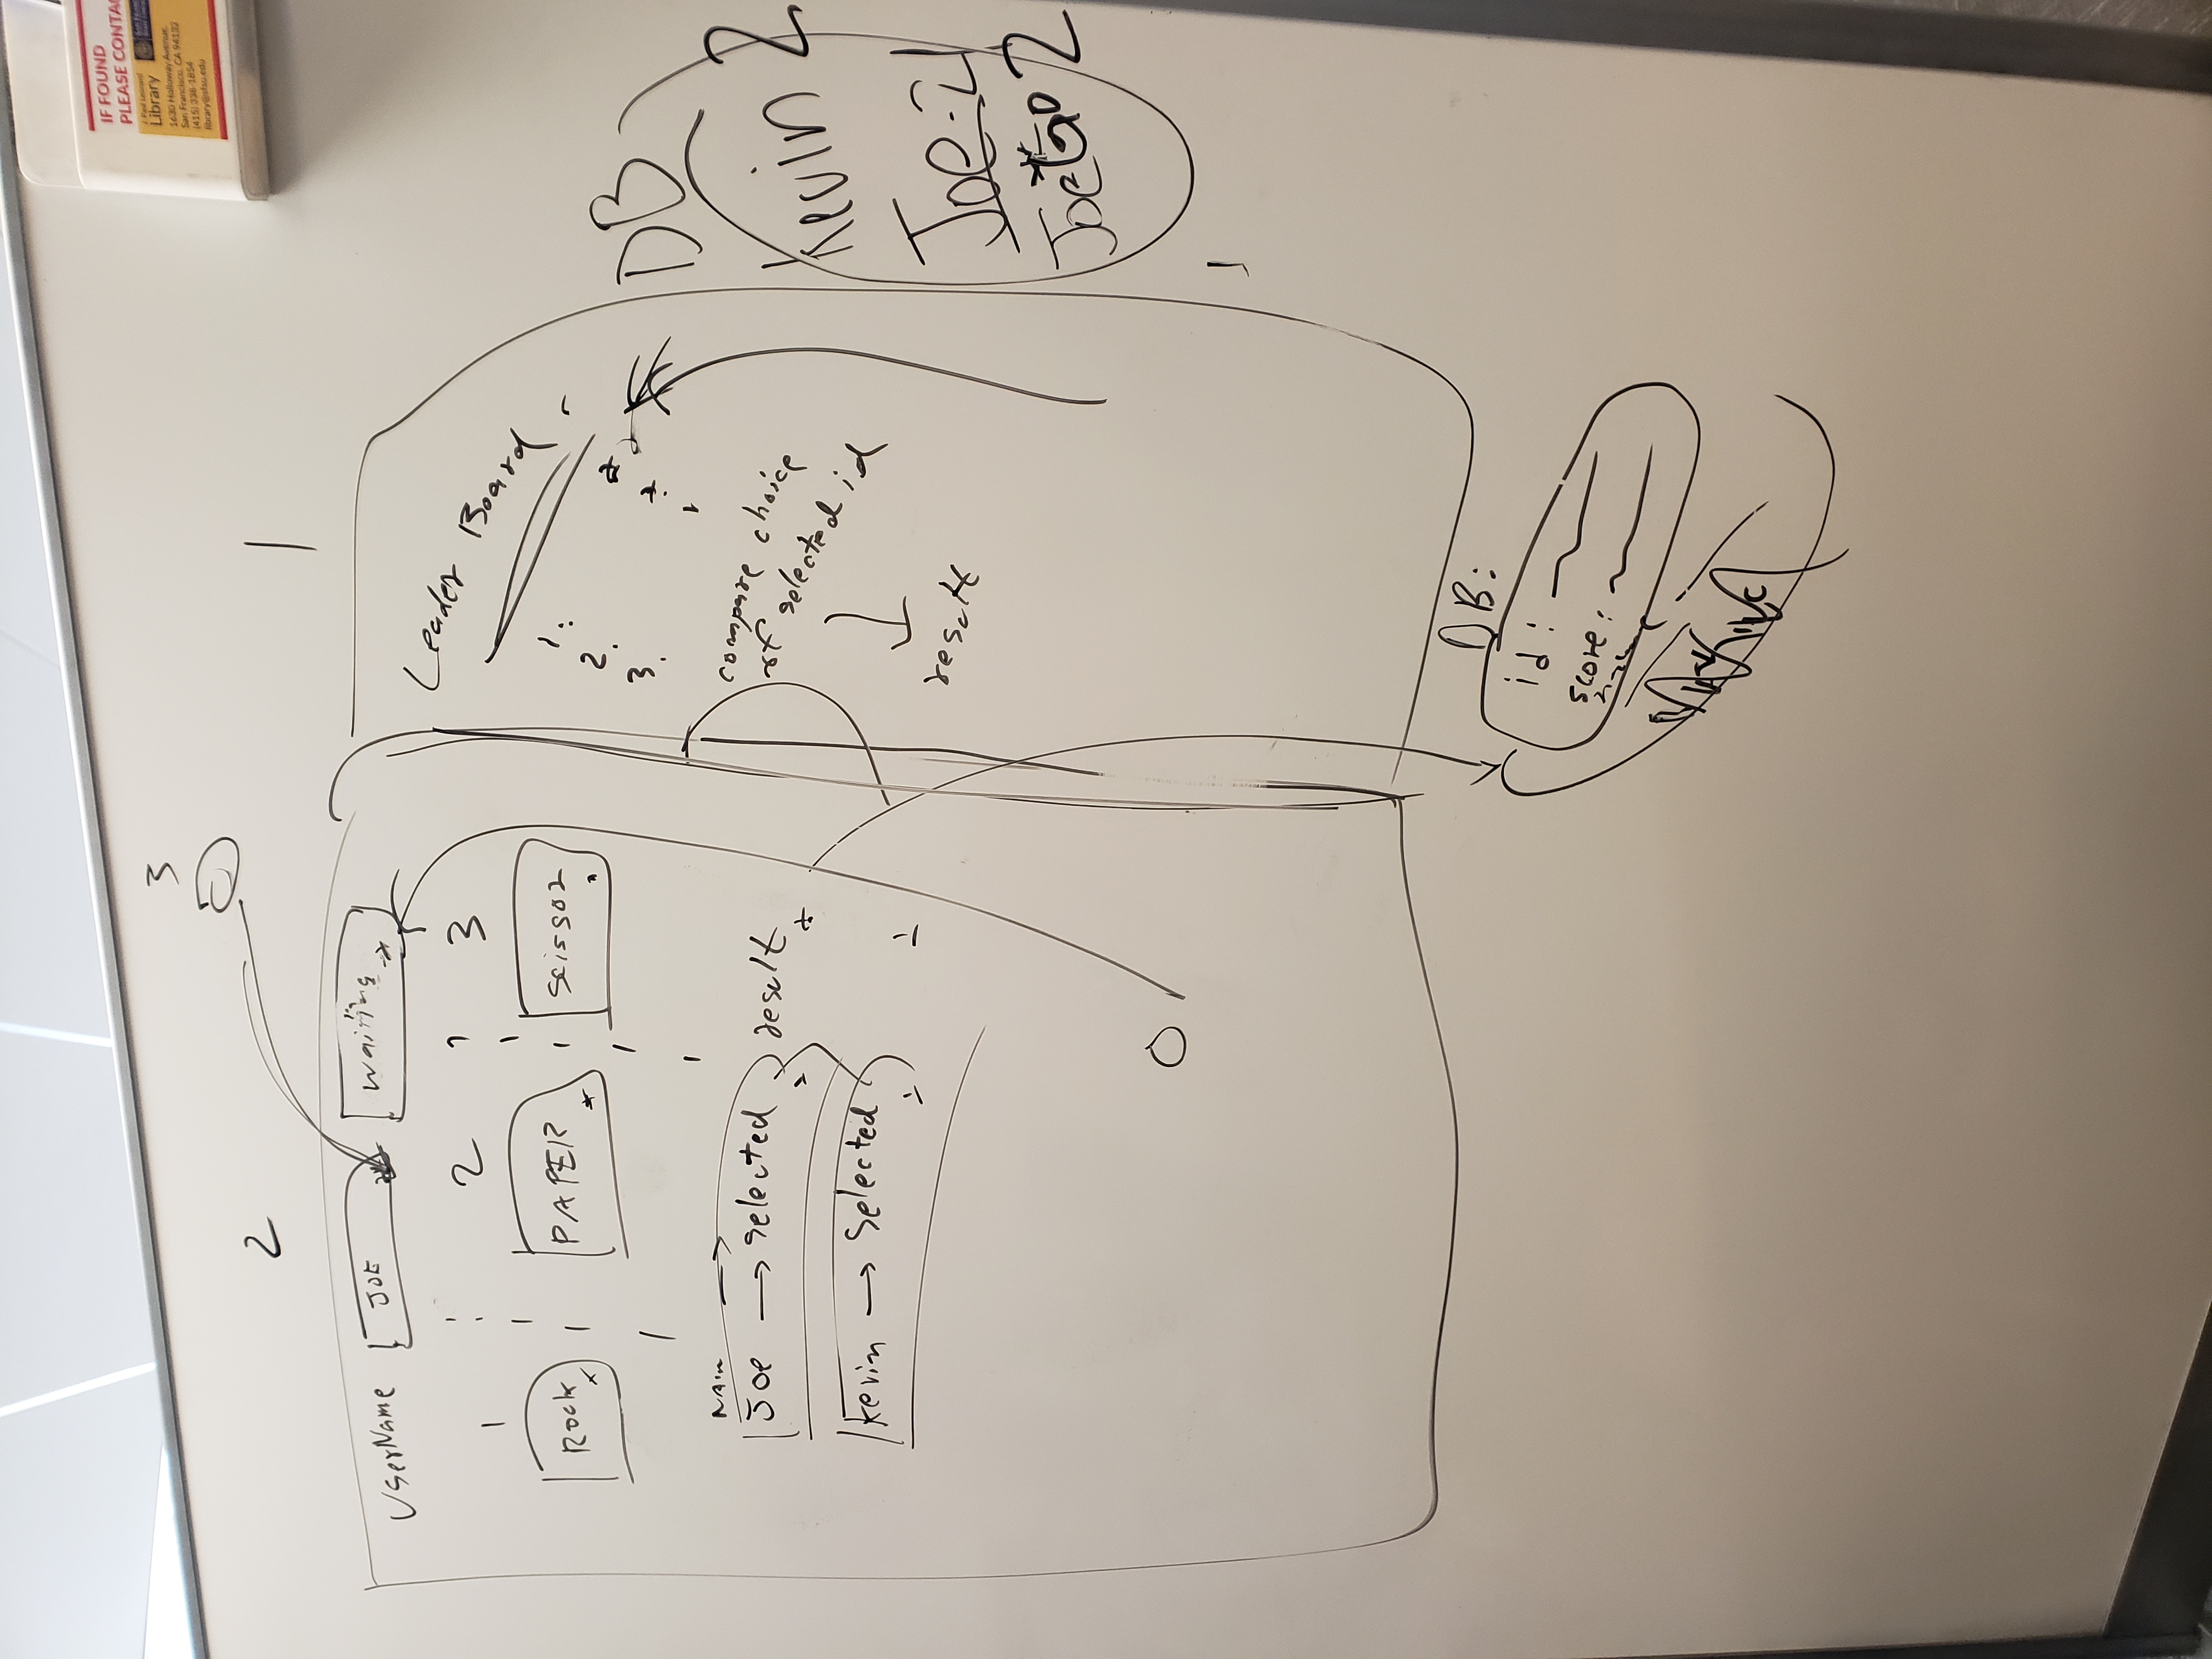 IF FOUND
PLEASE CONTA
J. Paul Leonard
Library
1630 Holloway Avenue,
San Francisco, CA 94132
(415) 338-1854
library@sfsu.edu
3
2
1
UserName JOE waiting
1 2 3
Rock PAPER Scissor
Joe → selected result
Kevin → selected
Leader Board
1.
2.
3.
compare choice
of selected id
result
DB
Kevin 2
Joe
JoeGo 2
DB:
id:
score: